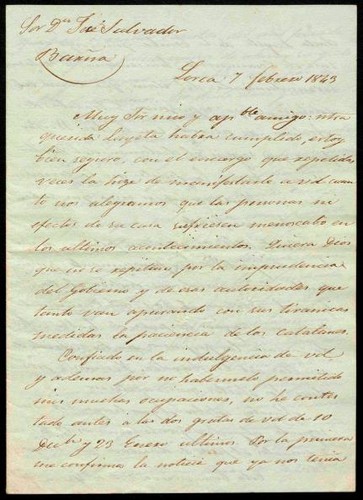 Sor Dn José Salvador
Barna
Lorca 7 febrero 1843
Muy Sor mio y apble amigo: ntra
querida Lugeta habra cumplido, estoy
bien seguro, con el encargo que repetidas
veces la hize de manifestarle a vd cuan
to nos alegramos que las personas ni
efectos de su casa sufriesen menoscabo en
los ultimos acontecimientos. Quiera Dios
que no se repitan por la imprudencia
del Gobierno y de esas autoridades que
tanto van apurando con sus tiranicas
medidas la paciencia de los catalanes.
Confiado en la indulgencia de vd
y ademas por no habermelo permitido
mis muchas ocupaciones, no he contes
tado antes à las dos gratas de vd de 10
Dicbe y 23 Enero ultimos. Por la primera
me confirma la noticia que ya nos tenia